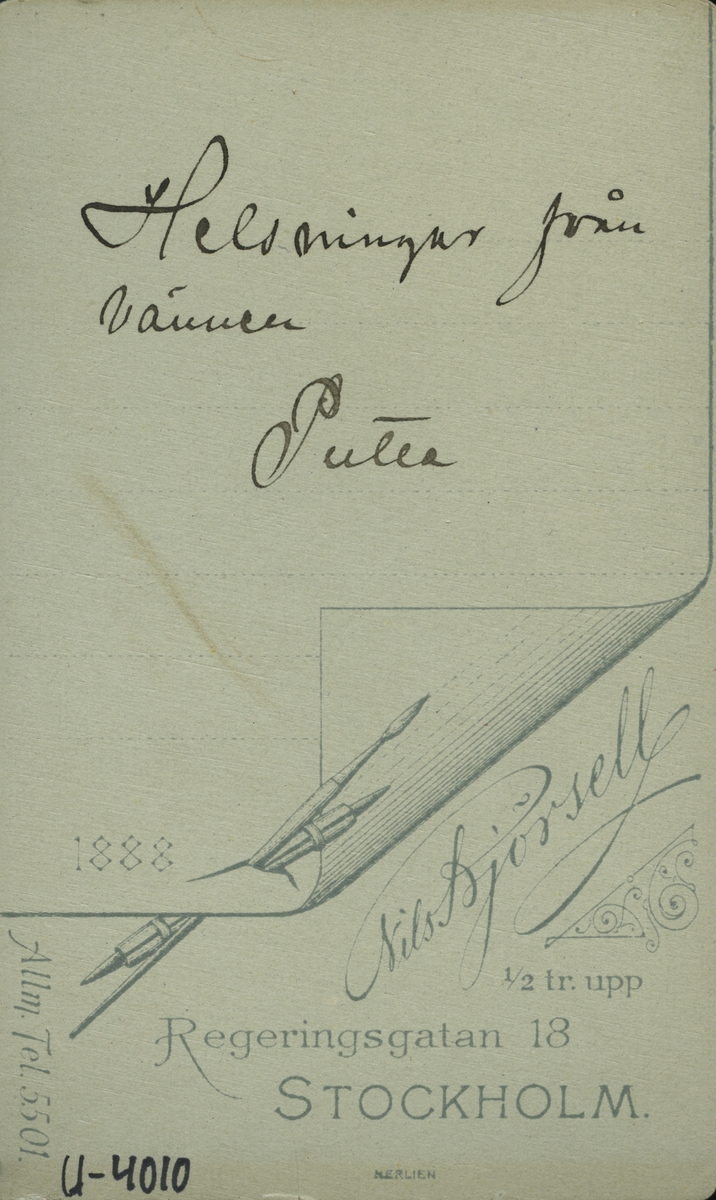 Helsningar från
Vännen
Putta
1888
Nils Björsell
1/2 tr. upp
Regeringsgatan 18
STOCKHOLM.
Allm. Tel. 5501.
U-4010
MERLIEN